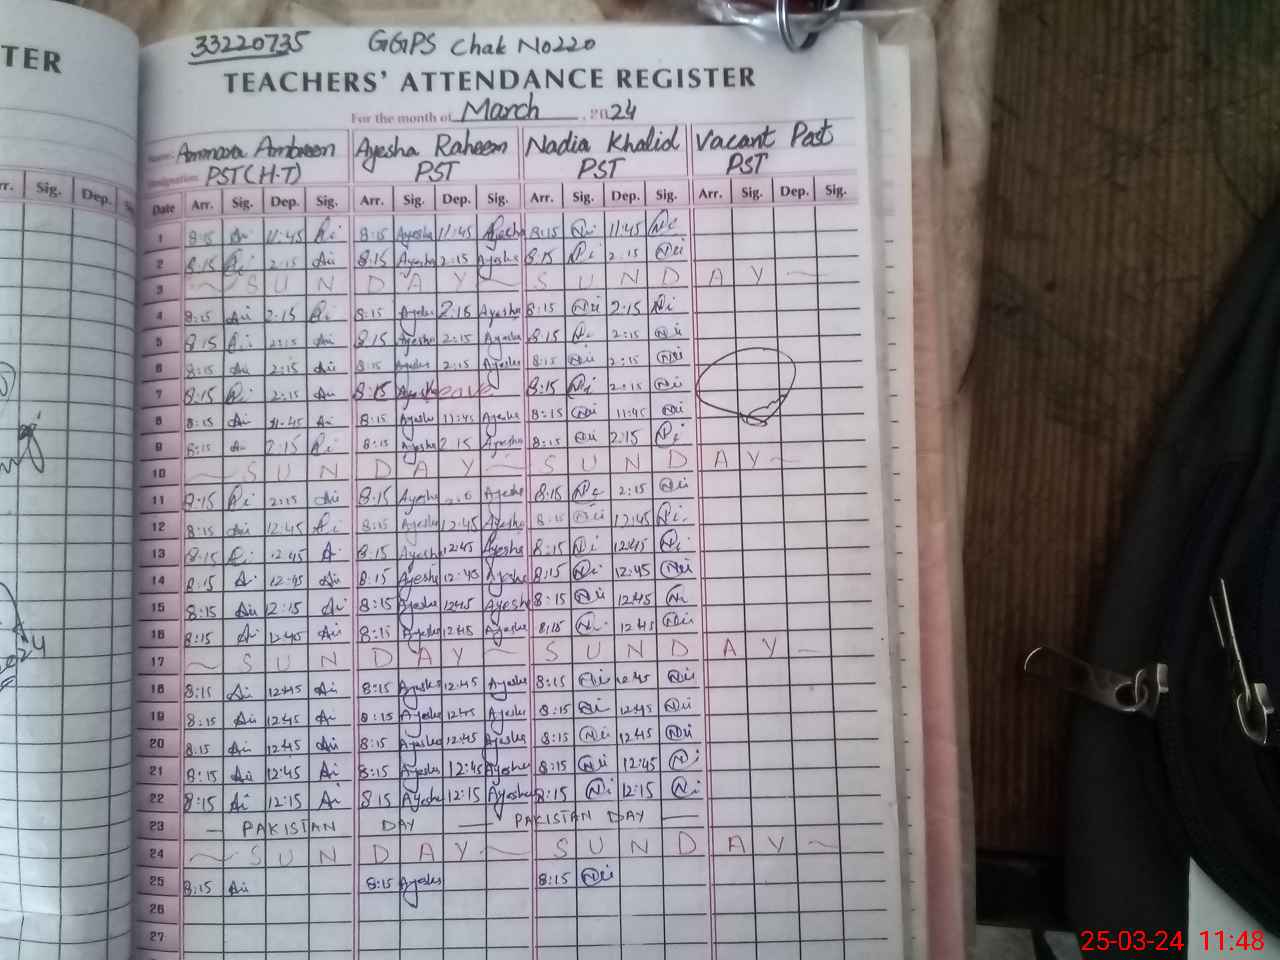 TER
33220735 GGPS Chak No220
TEACHERS' ATTENDANCE REGISTER
For the month of March , 2024
Name: Ammara Ambreen Ayesha Raheem Nadia Khalid Vacant Post
Designation: PST(H.T) PST PST PST
Sig. Dep. Date Arr. Sig. Dep. Sig. Arr. Sig. Dep. Sig. Arr. Sig. Dep. Sig. Arr. Sig. Dep. Sig.
1 8:15 11:45 8:15 Ayesha 11:45 Ayesha 8:15 11:45
2 8:15 2:15 8:15 Ayesha 2:15 Ayesha 8:15 2:15
3 ~ SUNDAY ~ SUNDAY ~
4 8:15 2:15 8:15 Ayesha 2:15 Ayesha 8:15 2:15
5 8:15 2:15 8:15 Ayesha 2:15 Ayesha 8:15 2:15
6 8:15 2:15 8:15 Ayesha 2:15 Ayesha 8:15 2:15
7 8:15 2:15 8:15 Ayesha Leave 8:15 2:15
8 8:15 11:45 8:15 Ayesha 11:45 Ayesha 8:15 11:45
9 8:15 2:15 8:15 Ayesha 2:15 Ayesha 8:15 2:15
10 ~ SUNDAY ~ SUNDAY ~
11 8:15 2:15 8:15 Ayesha Ayesha 8:15 2:15
12 8:15 12:45 8:15 Ayesha 12:45 Ayesha 8:15 12:45
13 8:15 12:45 8:15 Ayesha 12:45 Ayesha 8:15 12:45
14 8:15 12:45 8:15 Ayesha 12:45 Ayesha 8:15 12:45
15 8:15 12:15 8:15 Ayesha 12:45 Ayesha 8:15 12:45
16 8:15 12:45 8:15 Ayesha 12:45 Ayesha 8:15 12:45
17 ~ SUNDAY ~ SUNDAY ~
18 8:15 12:45 8:15 Ayesha 12:45 Ayesha 8:15 12:45
19 8:15 12:45 8:15 Ayesha 12:45 Ayesha 8:15 12:45
20 8:15 12:45 8:15 Ayesha 12:45 Ayesha 8:15 12:45
21 8:15 12:45 8:15 Ayesha 12:45 Ayesha 8:15 12:45
22 8:15 12:15 8:15 Ayesha 12:15 Ayesha 8:15 12:15
23 — PAKISTAN DAY — PAKISTAN DAY —
24 ~ SUNDAY ~ SUNDAY ~
25 8:15 8:15 Ayesha 8:15
26
27
25-03-24 11:48